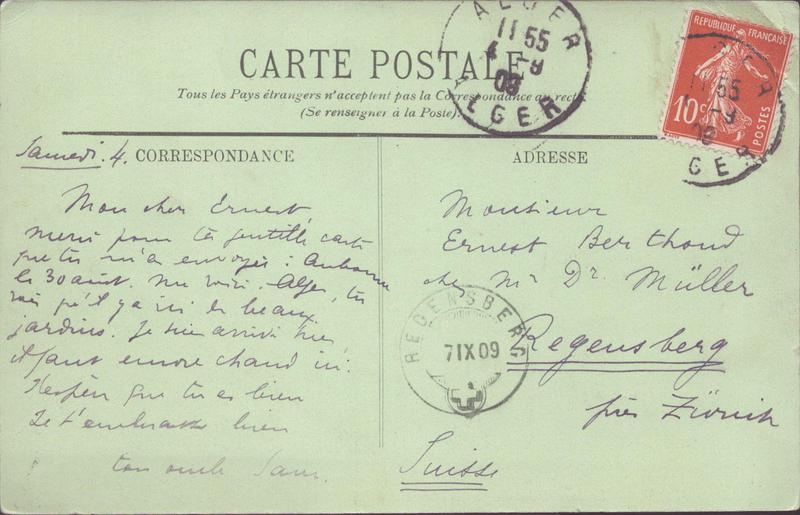 CARTE POSTALE
Tous les Pays étrangers n'acceptent pas la Correspondance au recto
(Se renseigner à la Poste).
ALGER
11 55
4 -9
09
ALGER
REPUBLIQUE FRANÇAISE
10 c
POSTES
11 55
-9
09
GER
Samedi. 4.
CORRESPONDANCE
Mon cher Ernest
merci pour ta gentille carte
que tu m'a envoyée: Aubonne
le 30 août. Me voici Alger, tu
vois qu'il y a ici de beaux
jardins. Je suis arrivé hier
il faut encore chaud ici.
J'espère que tu es bien
Je t'embrasse bien
ton oncle Sam.
ADRESSE
Monsieur
Ernest Berthoud
chez Mr Dr. Müller
Regensberg
près Zürich
Suisse
REGENSBERG
7 IX 09